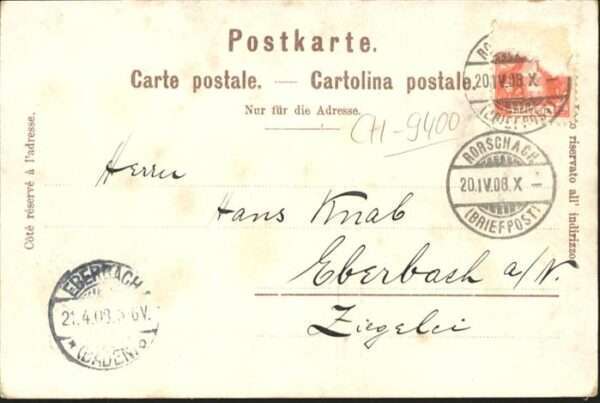 Postkarte.
Carte postale. — Cartolina postale.
Nur für die Adresse.
Côté réservé à l'adresse.
riservato all' indirizzo
CH-9400
RORSCHACH
20.IV.08.X –
(BRIEFPOST)
RORSCHACH
20.IV.08.X –
(BRIEFPOST)
Herrn
Hans Knab
Eberbach a/N.
Ziegelei
EBERBACH
21.4.08. 6V.
(BADEN)